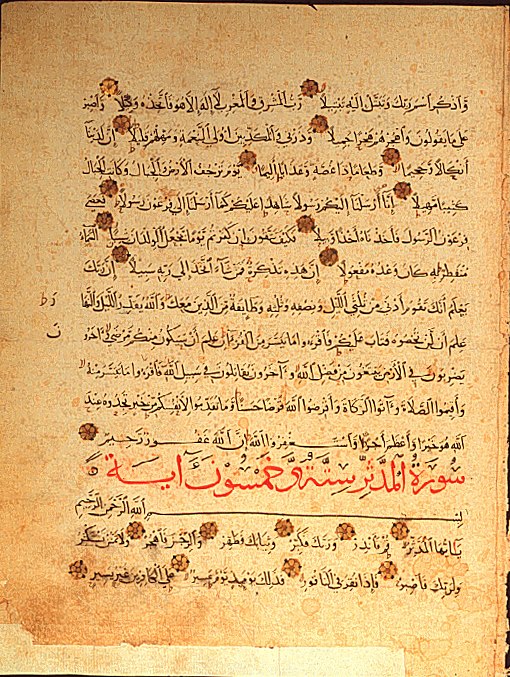 وَاذْكُرِ اسْمَ رَبِّكَ وَتَبَتَّلْ إِلَيْهِ تَبْتِيلًا رَبُّ الْمَشْرِقِ وَالْمَغْرِبِ لَا إِلَهَ إِلَّا هُوَ فَاتَّخِذْهُ وَكِيلًا وَاصْبِرْ
عَلَى مَا يَقُولُونَ وَاهْجُرْهُمْ هَجْرًا جَمِيلًا وَذَرْنِي وَالْمُكَذِّبِينَ أُولِي النَّعْمَةِ وَمَهِّلْهُمْ قَلِيلًا إِنَّ لَدَيْنَا
أَنْكَالًا وَجَحِيمًا وَطَعَامًا ذَا غُصَّةٍ وَعَذَابًا أَلِيمًا يَوْمَ تَرْجُفُ الْأَرْضُ وَالْجِبَالُ وَكَانَتِ الْجِبَالُ
كَثِيبًا مَهِيلًا إِنَّا أَرْسَلْنَا إِلَيْكُمْ رَسُولًا شَاهِدًا عَلَيْكُمْ كَمَا أَرْسَلْنَا إِلَى فِرْعَوْنَ رَسُولًا فَعَصَى
فِرْعَوْنُ الرَّسُولَ فَأَخَذْنَاهُ أَخْذًا وَبِيلًا فَكَيْفَ تَتَّقُونَ إِنْ كَفَرْتُمْ يَوْمًا يَجْعَلُ الْوِلْدَانَ شِيبًا السَّمَاءُ
مُنْفَطِرٌ بِهِ كَانَ وَعْدُهُ مَفْعُولًا إِنَّ هَذِهِ تَذْكِرَةٌ فَمَنْ شَاءَ اتَّخَذَ إِلَى رَبِّهِ سَبِيلًا إِنَّ رَبَّكَ
يَعْلَمُ أَنَّكَ تَقُومُ أَدْنَى مِنْ ثُلُثَيِ اللَّيْلِ وَنِصْفِهِ وَثُلُثِهِ وَطَائِفَةٌ مِنَ الَّذِينَ مَعَكَ وَاللَّهُ يُقَدِّرُ اللَّيْلَ وَالنَّهَارَ
عَلِمَ أَنْ لَنْ تُحْصُوهُ فَتَابَ عَلَيْكُمْ فَاقْرَءُوا مَا تَيَسَّرَ مِنَ الْقُرْآنِ عَلِمَ أَنْ سَيَكُونُ مِنْكُمْ مَرْضَى وَآخَرُونَ
يَضْرِبُونَ فِي الْأَرْضِ يَبْتَغُونَ مِنْ فَضْلِ اللَّهِ وَآخَرُونَ يُقَاتِلُونَ فِي سَبِيلِ اللَّهِ فَاقْرَءُوا مَا تَيَسَّرَ مِنْهُ
وَأَقِيمُوا الصَّلَاةَ وَآتُوا الزَّكَاةَ وَأَقْرِضُوا اللَّهَ قَرْضًا حَسَنًا وَمَا تُقَدِّمُوا لِأَنْفُسِكُمْ مِنْ خَيْرٍ تَجِدُوهُ عِنْدَ
اللَّهِ هُوَ خَيْرًا وَأَعْظَمَ أَجْرًا وَاسْتَغْفِرُوا اللَّهَ إِنَّ اللَّهَ غَفُورٌ رَحِيمٌ
سُورَةُ الْمُدَّثِّرِ سِتَّةٌ وَخَمْسُونَ آيَةً
بِسْمِ اللَّهِ الرَّحْمَنِ الرَّحِيمِ
يَا أَيُّهَا الْمُدَّثِّرُ قُمْ فَأَنْذِرْ وَرَبَّكَ فَكَبِّرْ وَثِيَابَكَ فَطَهِّرْ وَالرُّجْزَ فَاهْجُرْ وَلَا تَمْنُنْ تَسْتَكْثِرُ
وَلِرَبِّكَ فَاصْبِرْ فَإِذَا نُقِرَ فِي النَّاقُورِ فَذَلِكَ يَوْمَئِذٍ يَوْمٌ عَسِيرٌ عَلَى الْكَافِرِينَ غَيْرُ يَسِيرٍ